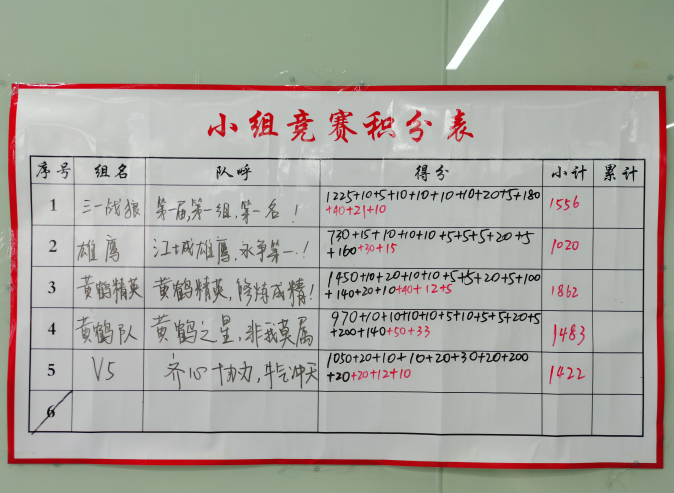 小组竞赛积分表
序号 组名 队呼 得分 小计 累计
1 三一战狼 第一届,第一组,第一名! 1225+10+5+10+10+10+10+20+5+180 1556
+40+21+10
2 雄鹰 江城雄鹰,永争第一! 730+15+10+10+10+5+5+5+20+5 1020
+160+30+15
3 黄鹤精英 黄鹤精英,修炼成精! 1450+10+20+10+10+5+5+20+5+100 1862
+140+20+10+40+12+5
4 黄鹤队 黄鹤之星,非我莫属 970+10+10+10+10+5+10+5+5+20+5 1483
+200+140+50+33
5 V5 齐心协力,牛气冲天 1050+20+10+10+20+30+20+200 1422
+20+20+12+10
6